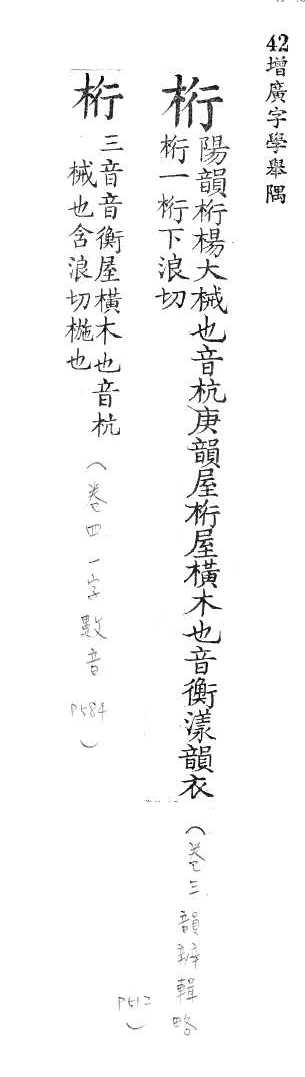 42增廣字學舉隅
桁
陽韻桁楊大械也音杭庚韻屋桁屋橫木也音衡漾韻衣
桁一桁下浪切
（卷三韻辨輯略
P512）
桁
三音音衡屋橫木也音杭
械也含浪切椸也
（卷四一字數音
P584）